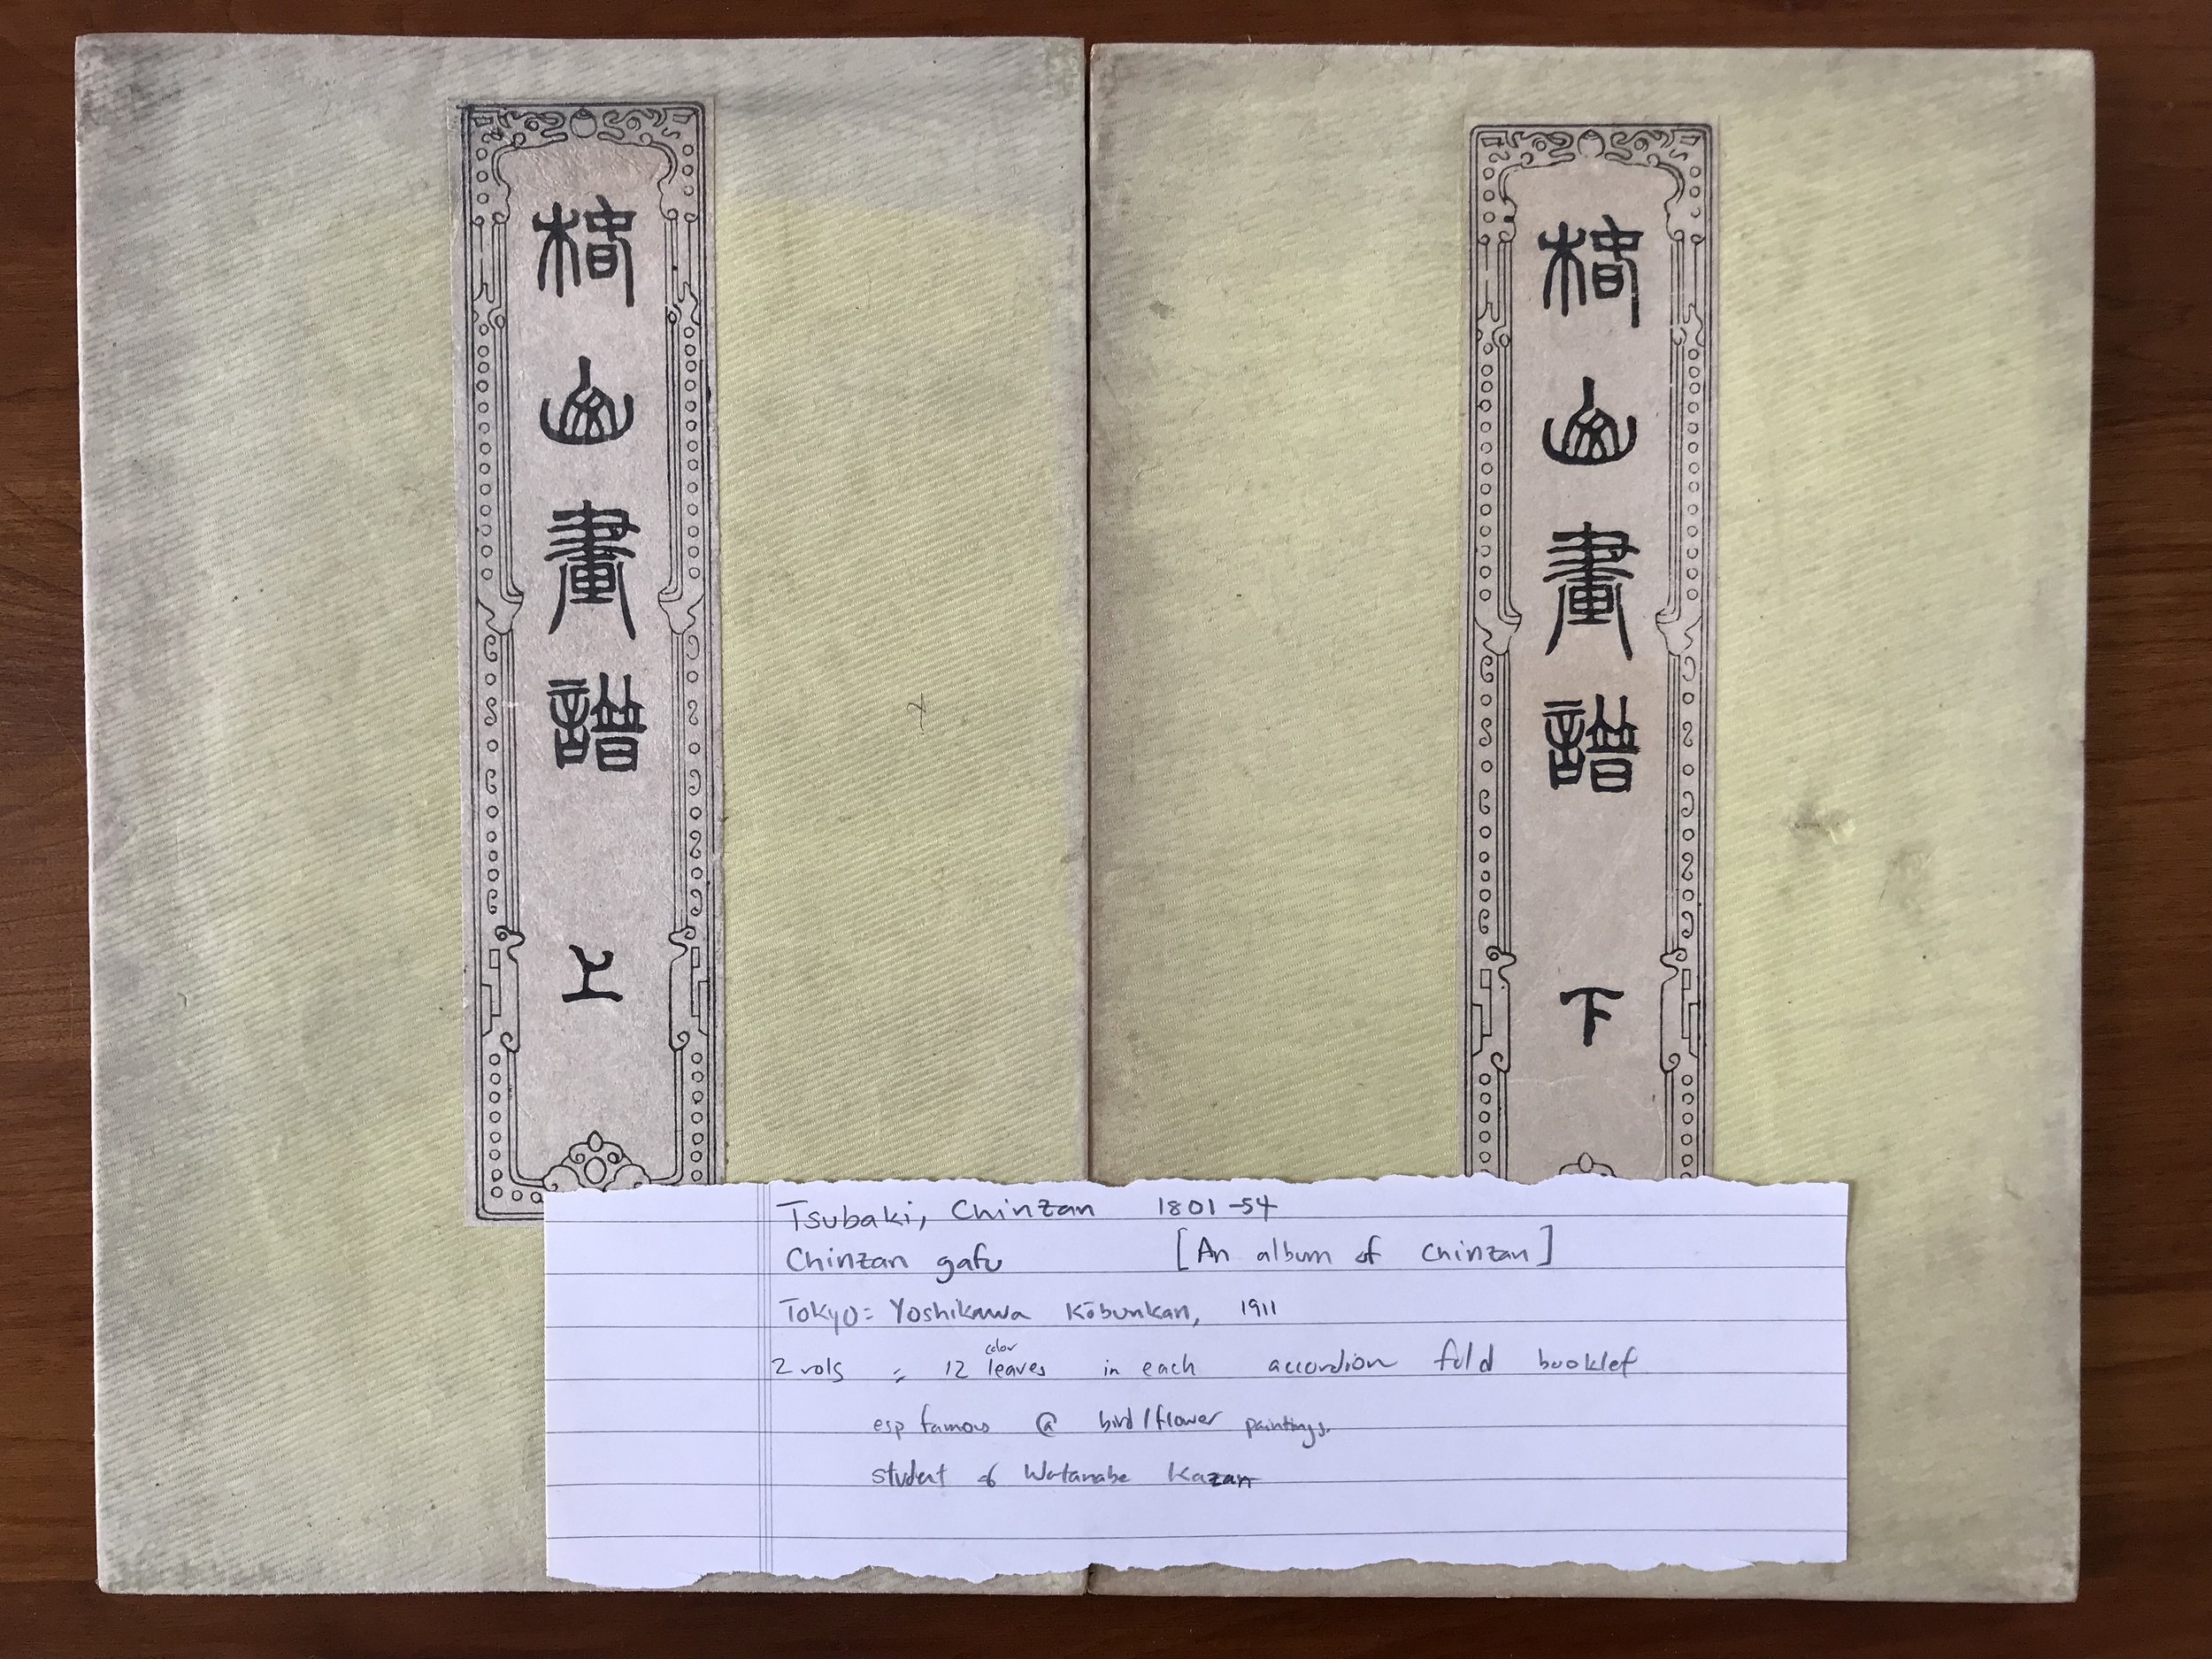 椿山畫譜 上
椿山畫譜 下
Tsubaki, Chinzan 1801-54
Chinzan gafu [An album of Chinzan]
Tokyo: Yoshikawa Kōbunkan, 1911
2 vols ; 12 color leaves in each accordion fold booklet
esp famous @ bird/flower paintings.
student of Watanabe Kazan